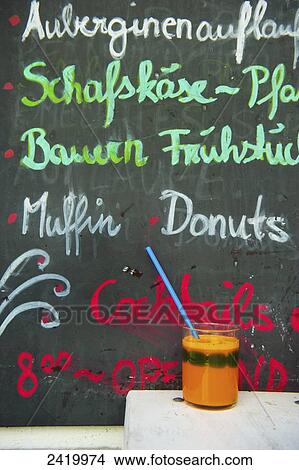 Auberginenauflau
Schafskäse~Pfa
Bauern Frühstüc
Muffin Donuts
Cocktails
8⁰⁰~OPEN END
© fotosearch
2419974 www.fotosearch.com